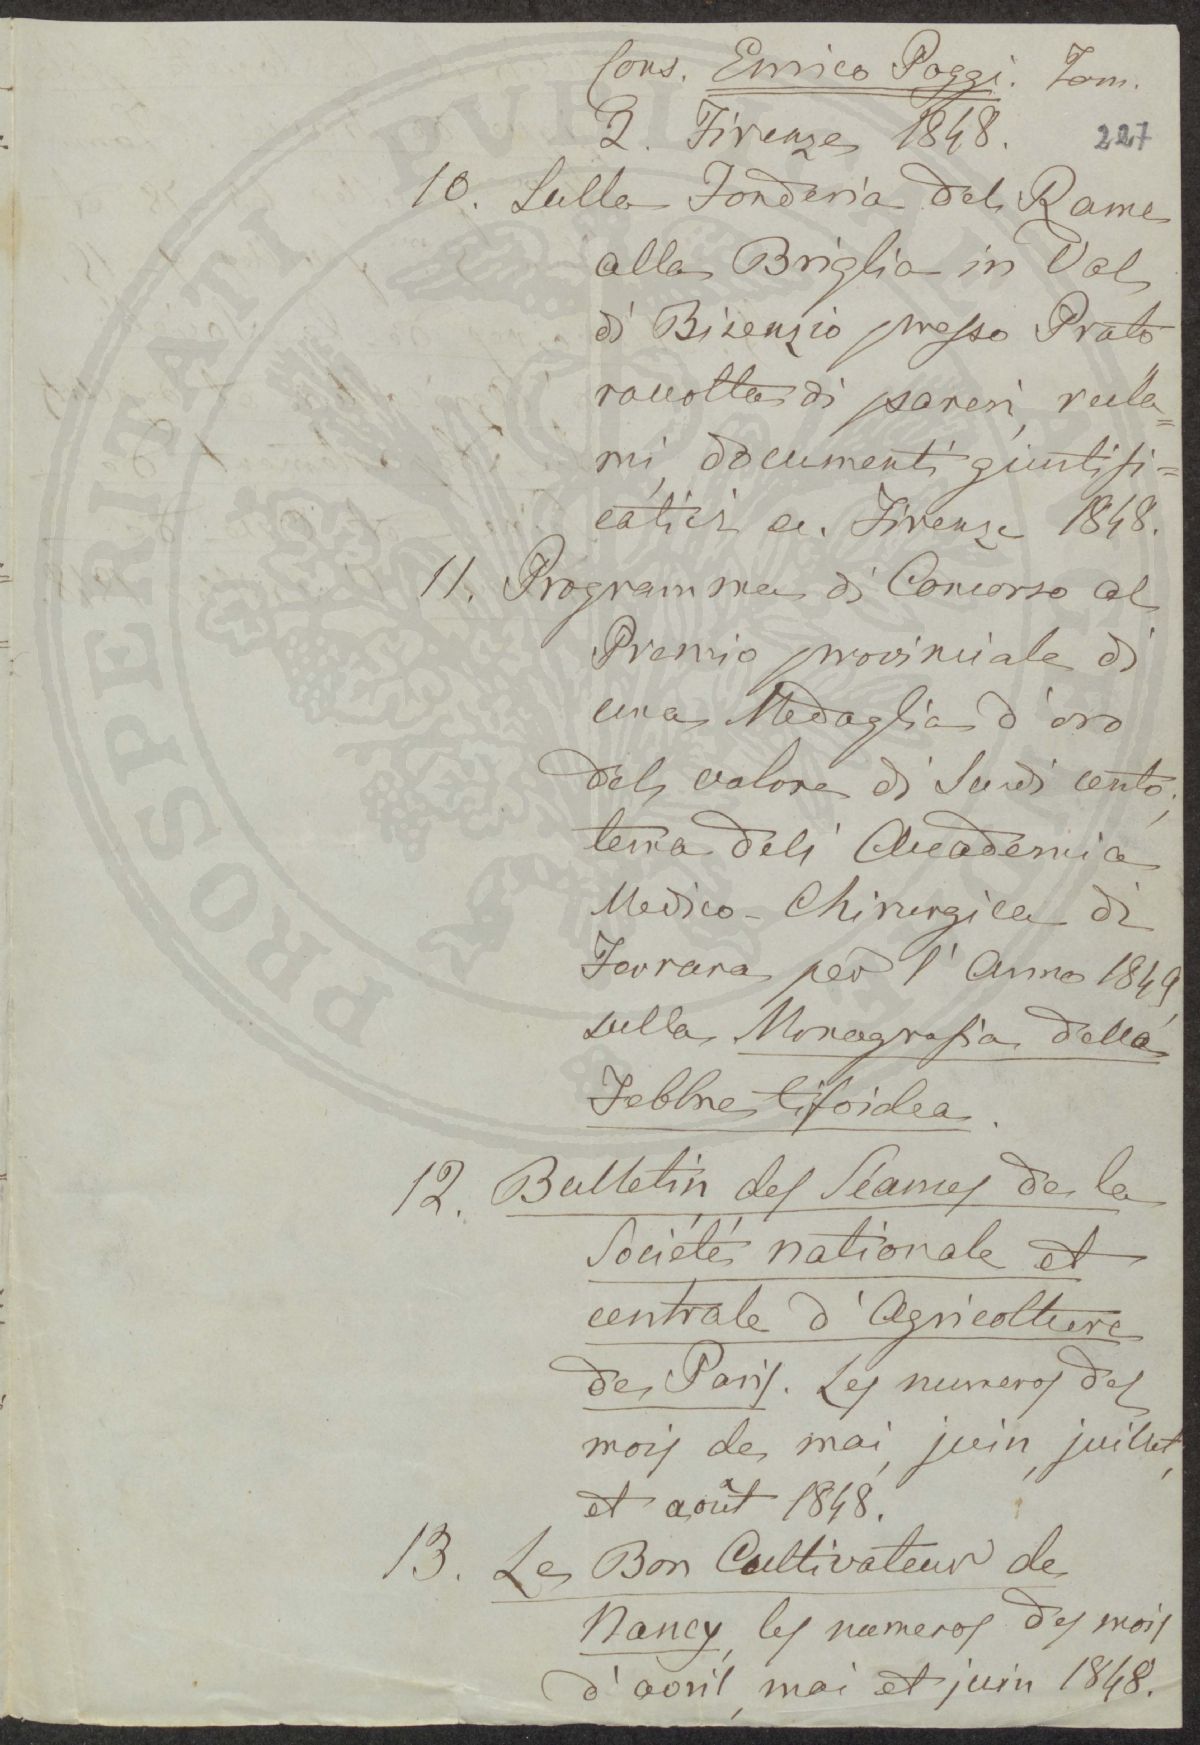 Cons. Enrico Poggi. Tom.
2. Firenze 1848.
227
10. Sulla Fonderia del Rame
alla Briglia in Val
di Bisenzio presso Prato
raccolta di pareri, recla=
mi, documenti giustifi=
catici ec. Firenze 1848.
11. Programma di Concorso al
Premio provinciale di
una Medaglia d'oro
del valore di Scudi cento,
tema dell'Accademia
Medico-Chirurgica di
Ferrara per l'Anno 1849,
sulla Monografia della
Febbre tifoidea.
12. Bulletin des Séances de la
Société nationale et
centrale d'Agricolture
de Paris. Les numeros des
mois de mai, juin, juillet,
et août 1848.
13. Le Bon Cultivateur de
Nancy, les numeros des mois
d'avril, mai et juin 1848.
PROSPERITATI PUBLICAE